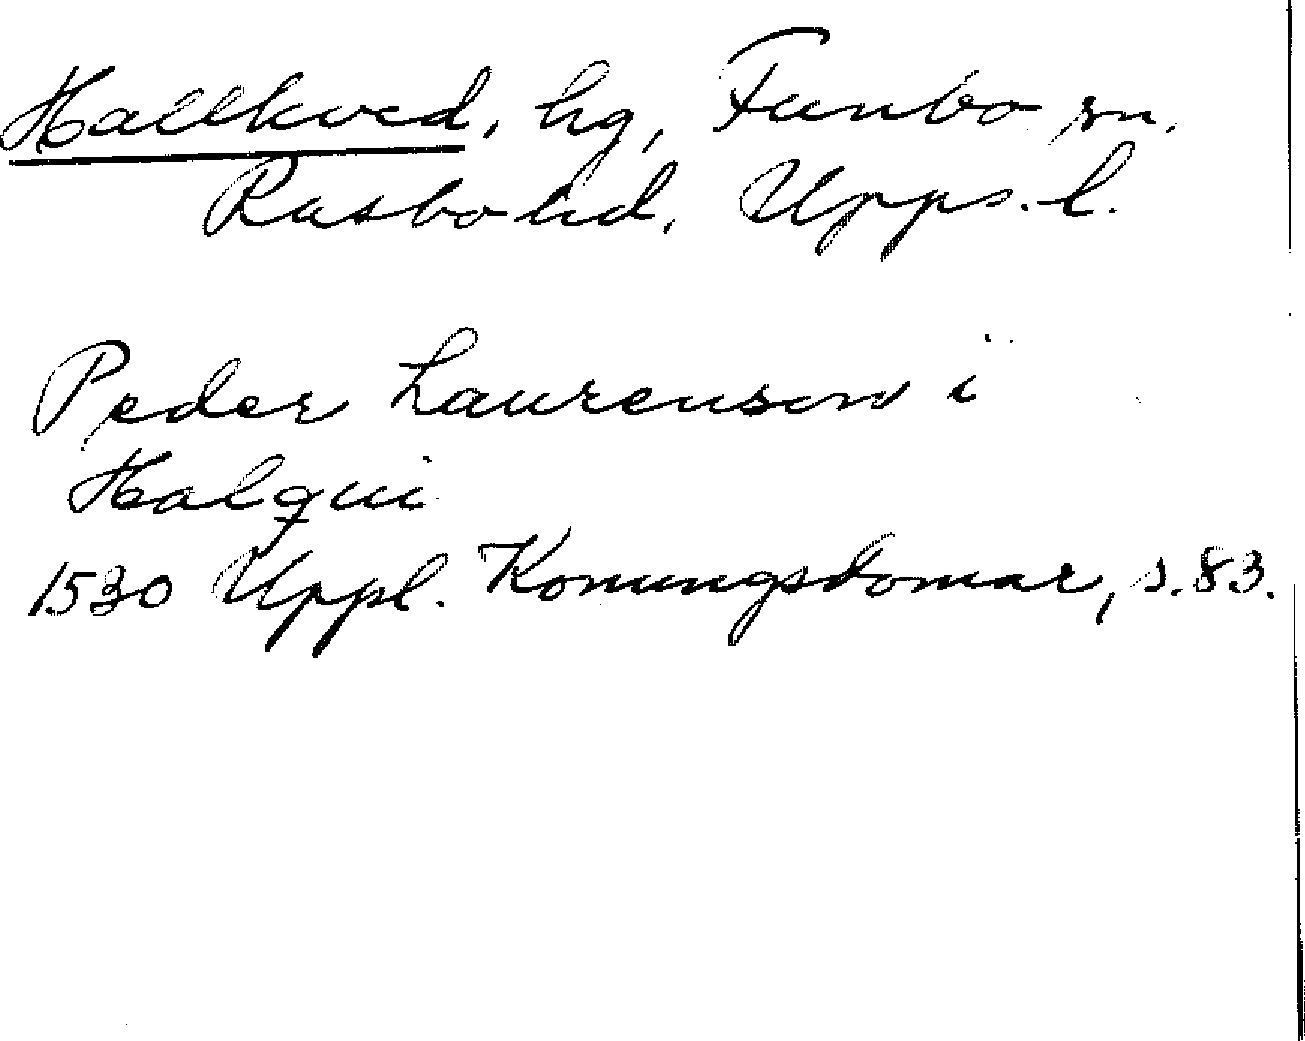 Hallkved, hg, Funbo sn.
Rasbo hd, Upps. l.
Peder Laurenson i
Halqui
1530 Uppl. Konungsdomar, s. 83.